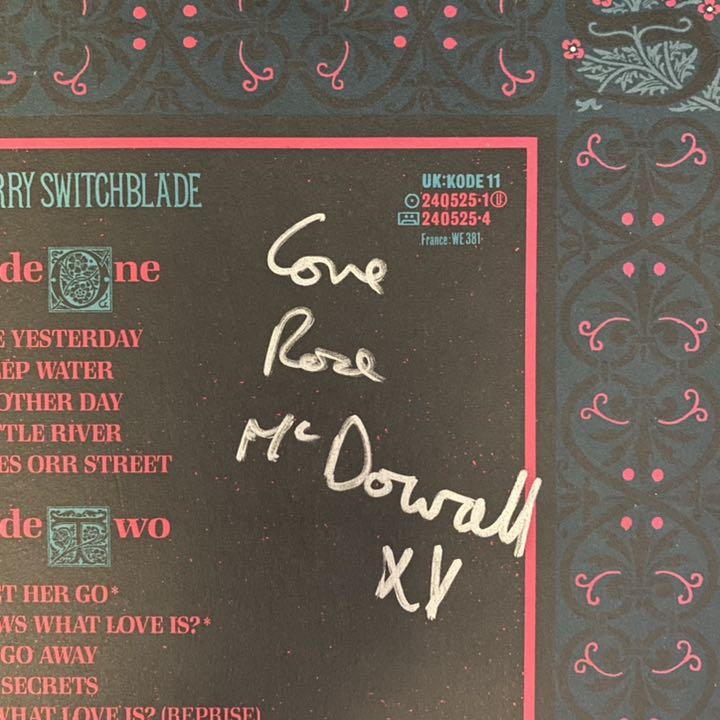 RRY SWITCHBLADE
UK:KODE 11
240525·1 U
240525·4
France: WE 381
de One
E YESTERDAY
EP WATER
OTHER DAY
TTLE RIVER
ES ORR STREET
de Two
T HER GO*
WS WHAT LOVE IS?*
GO AWAY
SECRETS
WHAT LOVE IS? (REPRISE)
Love
Rose
McDowall
XX